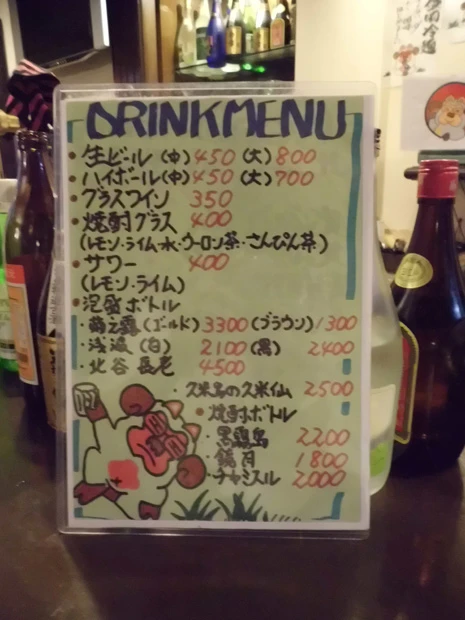 DRINK MENU
・生ビール(中)450(大)800
・ハイボール(中)450(大)700
・グラスワイン 350
・焼酎グラス 400
(レモン・ライム・水・ウーロン茶・さんぴん茶)
・サワー 400
(レモン・ライム)
・泡盛ボトル
・菊之露(ゴールド)3300(ブラウン)1300
・残波(白)2100(黒)2400
・北谷長老 4500
・久米島の久米仙 2500
・焼酎ボトル
・黒霧島 2200
・鏡月 1800
・チャミスル 2000